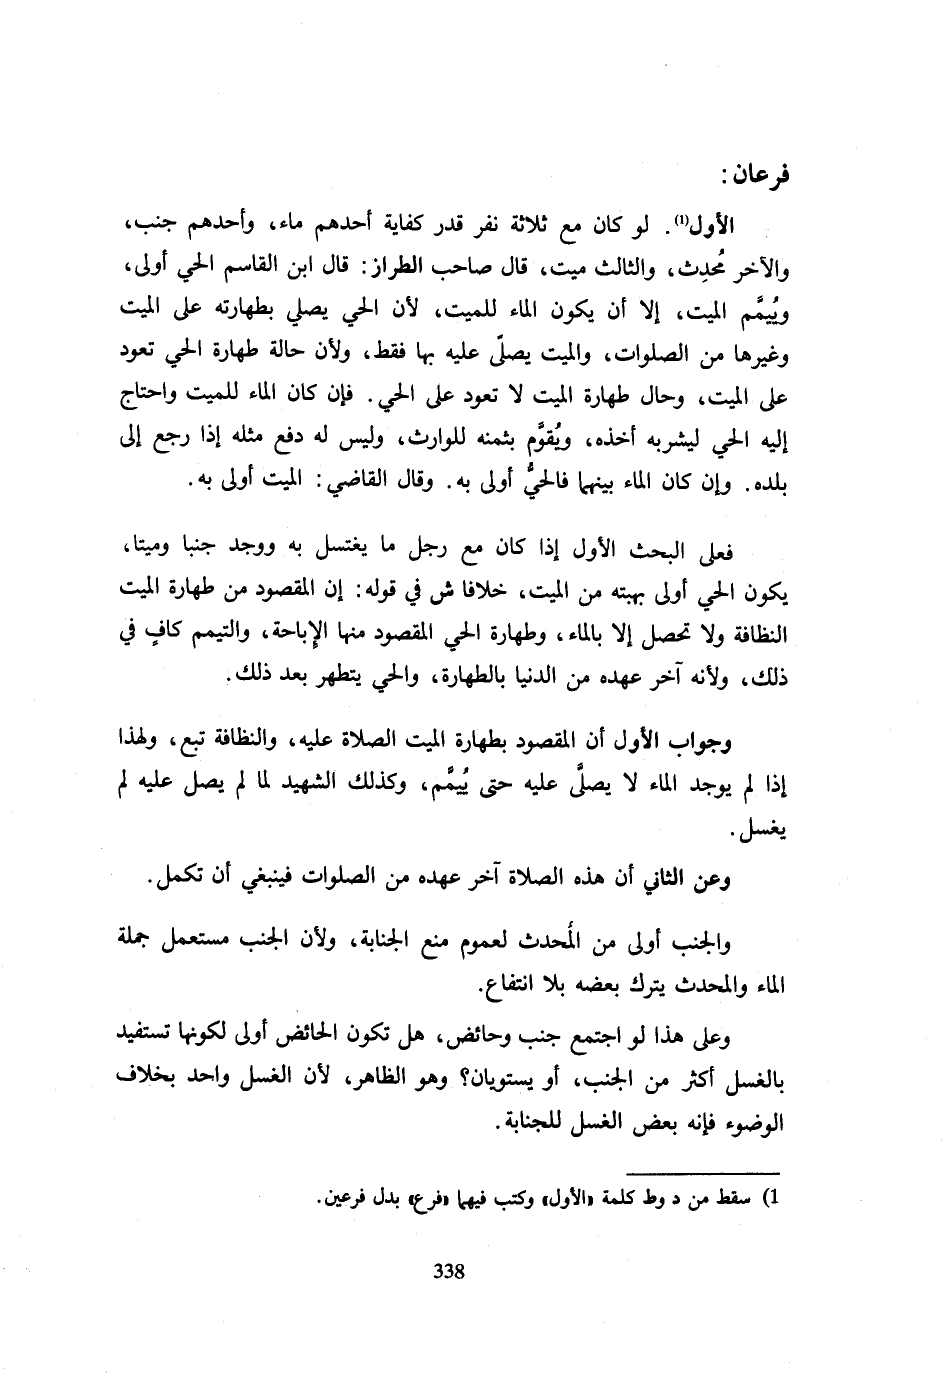 فرعان :
الأول(1). لو كان مع ثلاثة نفر قدر كفاية أحدهم ماء، وأحدهم جنب،
والآخر مُحدِث، والثالث ميت، قال صاحب الطراز : قال ابن القاسم الحي أولى،
ويُيمَّم الميت، إلا أن يكون الماء للميت، لأن الحي يصلي بطهارته على الميت
وغيرها من الصلوات، والميت يصلّى عليه بها فقط، ولأن حالة طهارة الحي تعود
على الميت، وحال طهارة الميت لا تعود على الحي. فإن كان الماء للميت واحتاج
إليه الحي ليشربه أخذه، ويُقوَّم بثمنه للوارث، وليس له دفع مثله إذا رجع إلى
بلده. وإن كان الماء بينهما فالحيُّ أولى به. وقال القاضي : الميت أولى به.
فعلى البحث الأول إذا كان مع رجل ما يغتسل به ووجد جنبا وميتا،
يكون الحي أولى بهبته من الميت، خلافا ش في قوله : إن المقصود من طهارة الميت
النظافة ولا تحصل إلا بالماء، وطهارة الحي المقصود منها الإباحة، والتيمم كافٍ في
ذلك، ولأنه آخر عهده من الدنيا بالطهارة، والحي يتطهر بعد ذلك.
وجواب الأول أن المقصود بطهارة الميت الصلاة عليه، والنظافة تبع، ولهذا
إذا لم يوجد الماء لا يصلَّى عليه حتى يُيمَّم، وكذلك الشهيد لما لم يصل عليه لم
يغسل.
وعن الثاني أن هذه الصلاة آخر عهده من الصلوات فينبغي أن تكمل.
والجنب أولى من المُحدث لعموم منع الجنابة، ولأن الجنب مستعمل جملة
الماء والمحدث يترك بعضه بلا انتفاع.
وعلى هذا لو اجتمع جنب وحائض، هل تكون الحائض أولى لكونها تستفيد
بالغسل أكثر من الجنب، أو يستويان؟ وهو الظاهر، لأن الغسل واحد بخلاف
الوضوء فإنه بعض الغسل للجنابة.
1) سقط من د وط كلمة «الأول» وكتب فيهما «فرع» بدل فرعين.
338